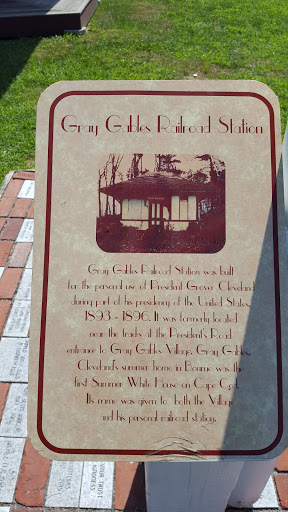 Gray Gables Railroad Station
Gray Gables Railroad Station was built
for the personal use of President Grover Cleveland
during part of his presidency of the United States,
1893 - 1896. It was formerly located
near the tracks at the President's Road
entrance to Gray Gables Village. Gray Gables,
Cleveland's summer home in Bourne was the
first Summer White House on Cape Cod.
Its name was given to both the Village
and his personal railroad station.
YOUR
TRUST